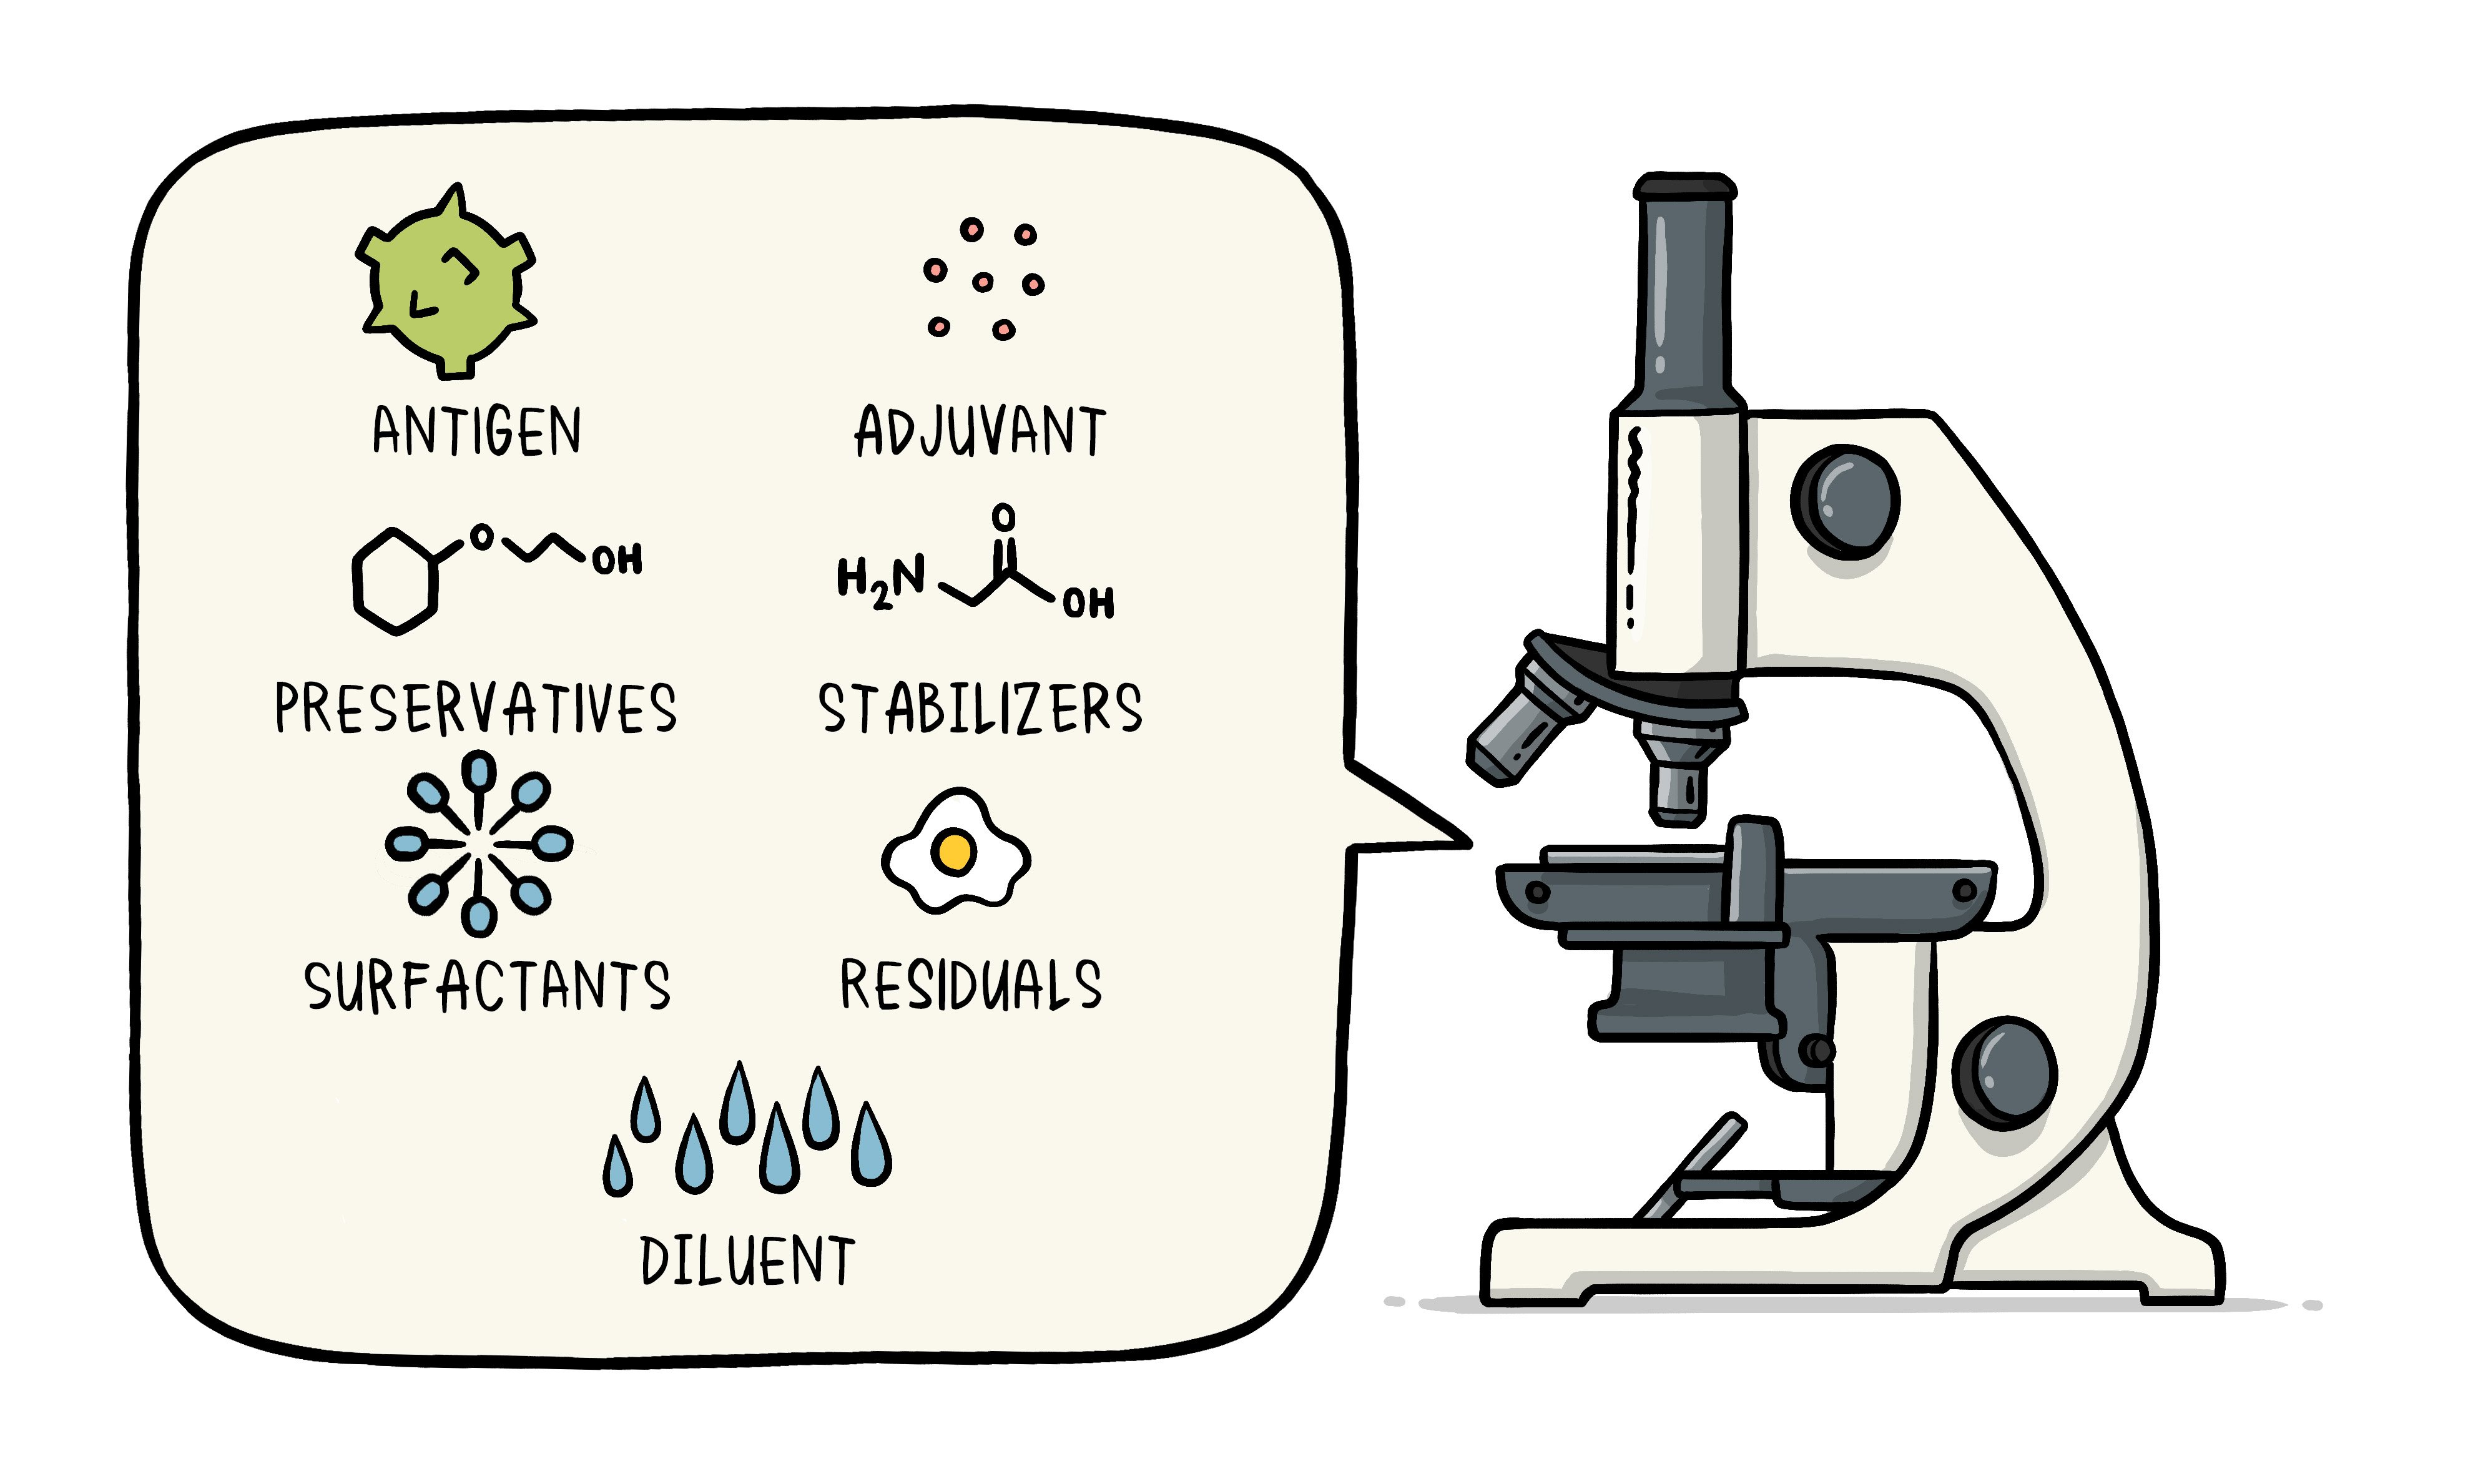 ANTIGEN
ADJUVANT
O
OH
O
H2N
OH
PRESERVATIVES
STABILIZERS
SURFACTANTS
RESIDUALS
DILUENT